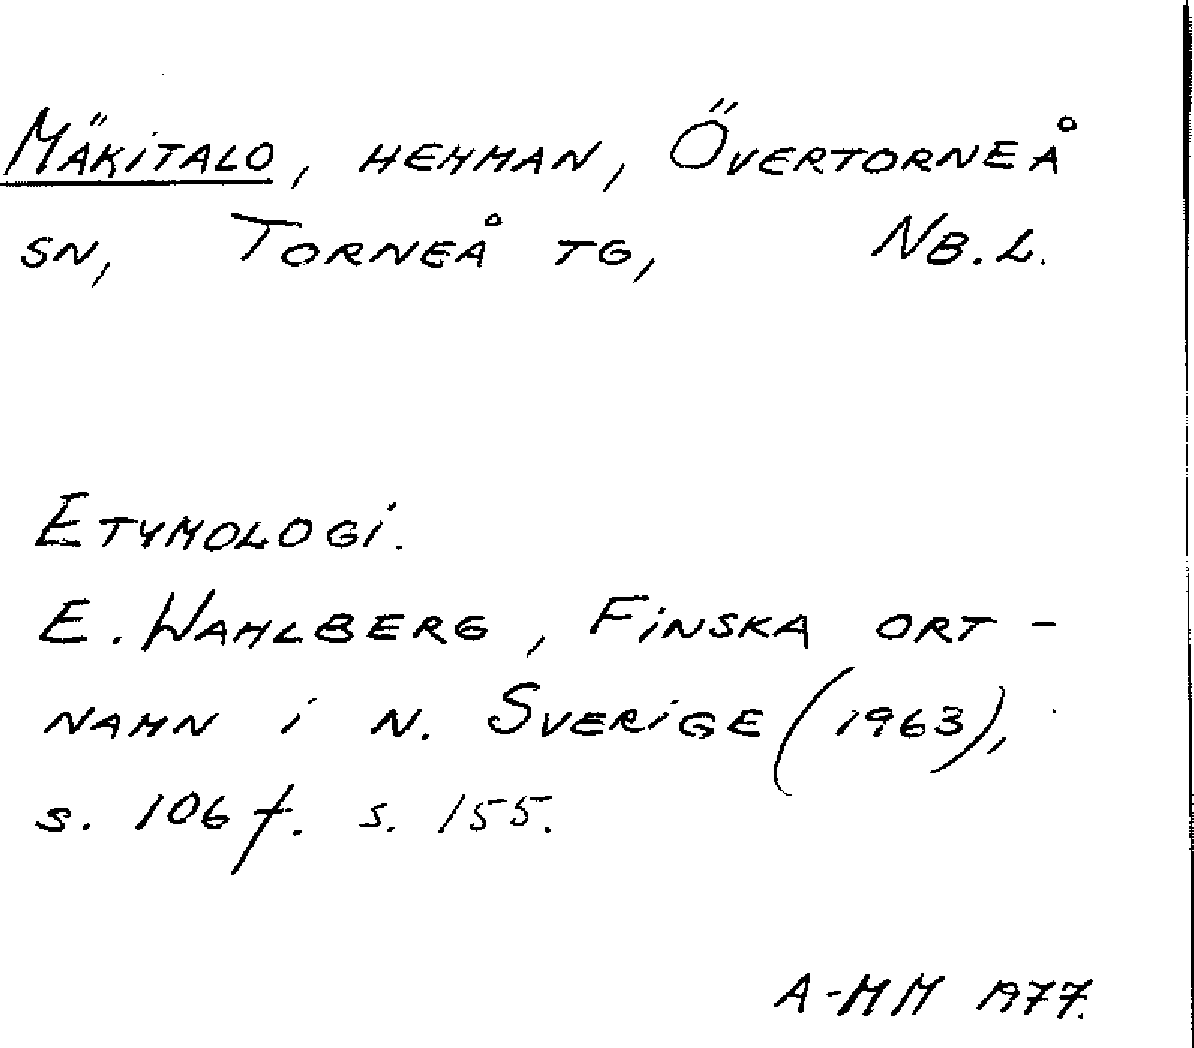 Mäkitalo, hemman, Övertorneå
sn, Torneå tg, Nb. l.
Etymologi.
E. Wahlberg, Finska ort-
namn i n. Sverige (1963),
s. 106 f. s. 155.
A-MM 1977.